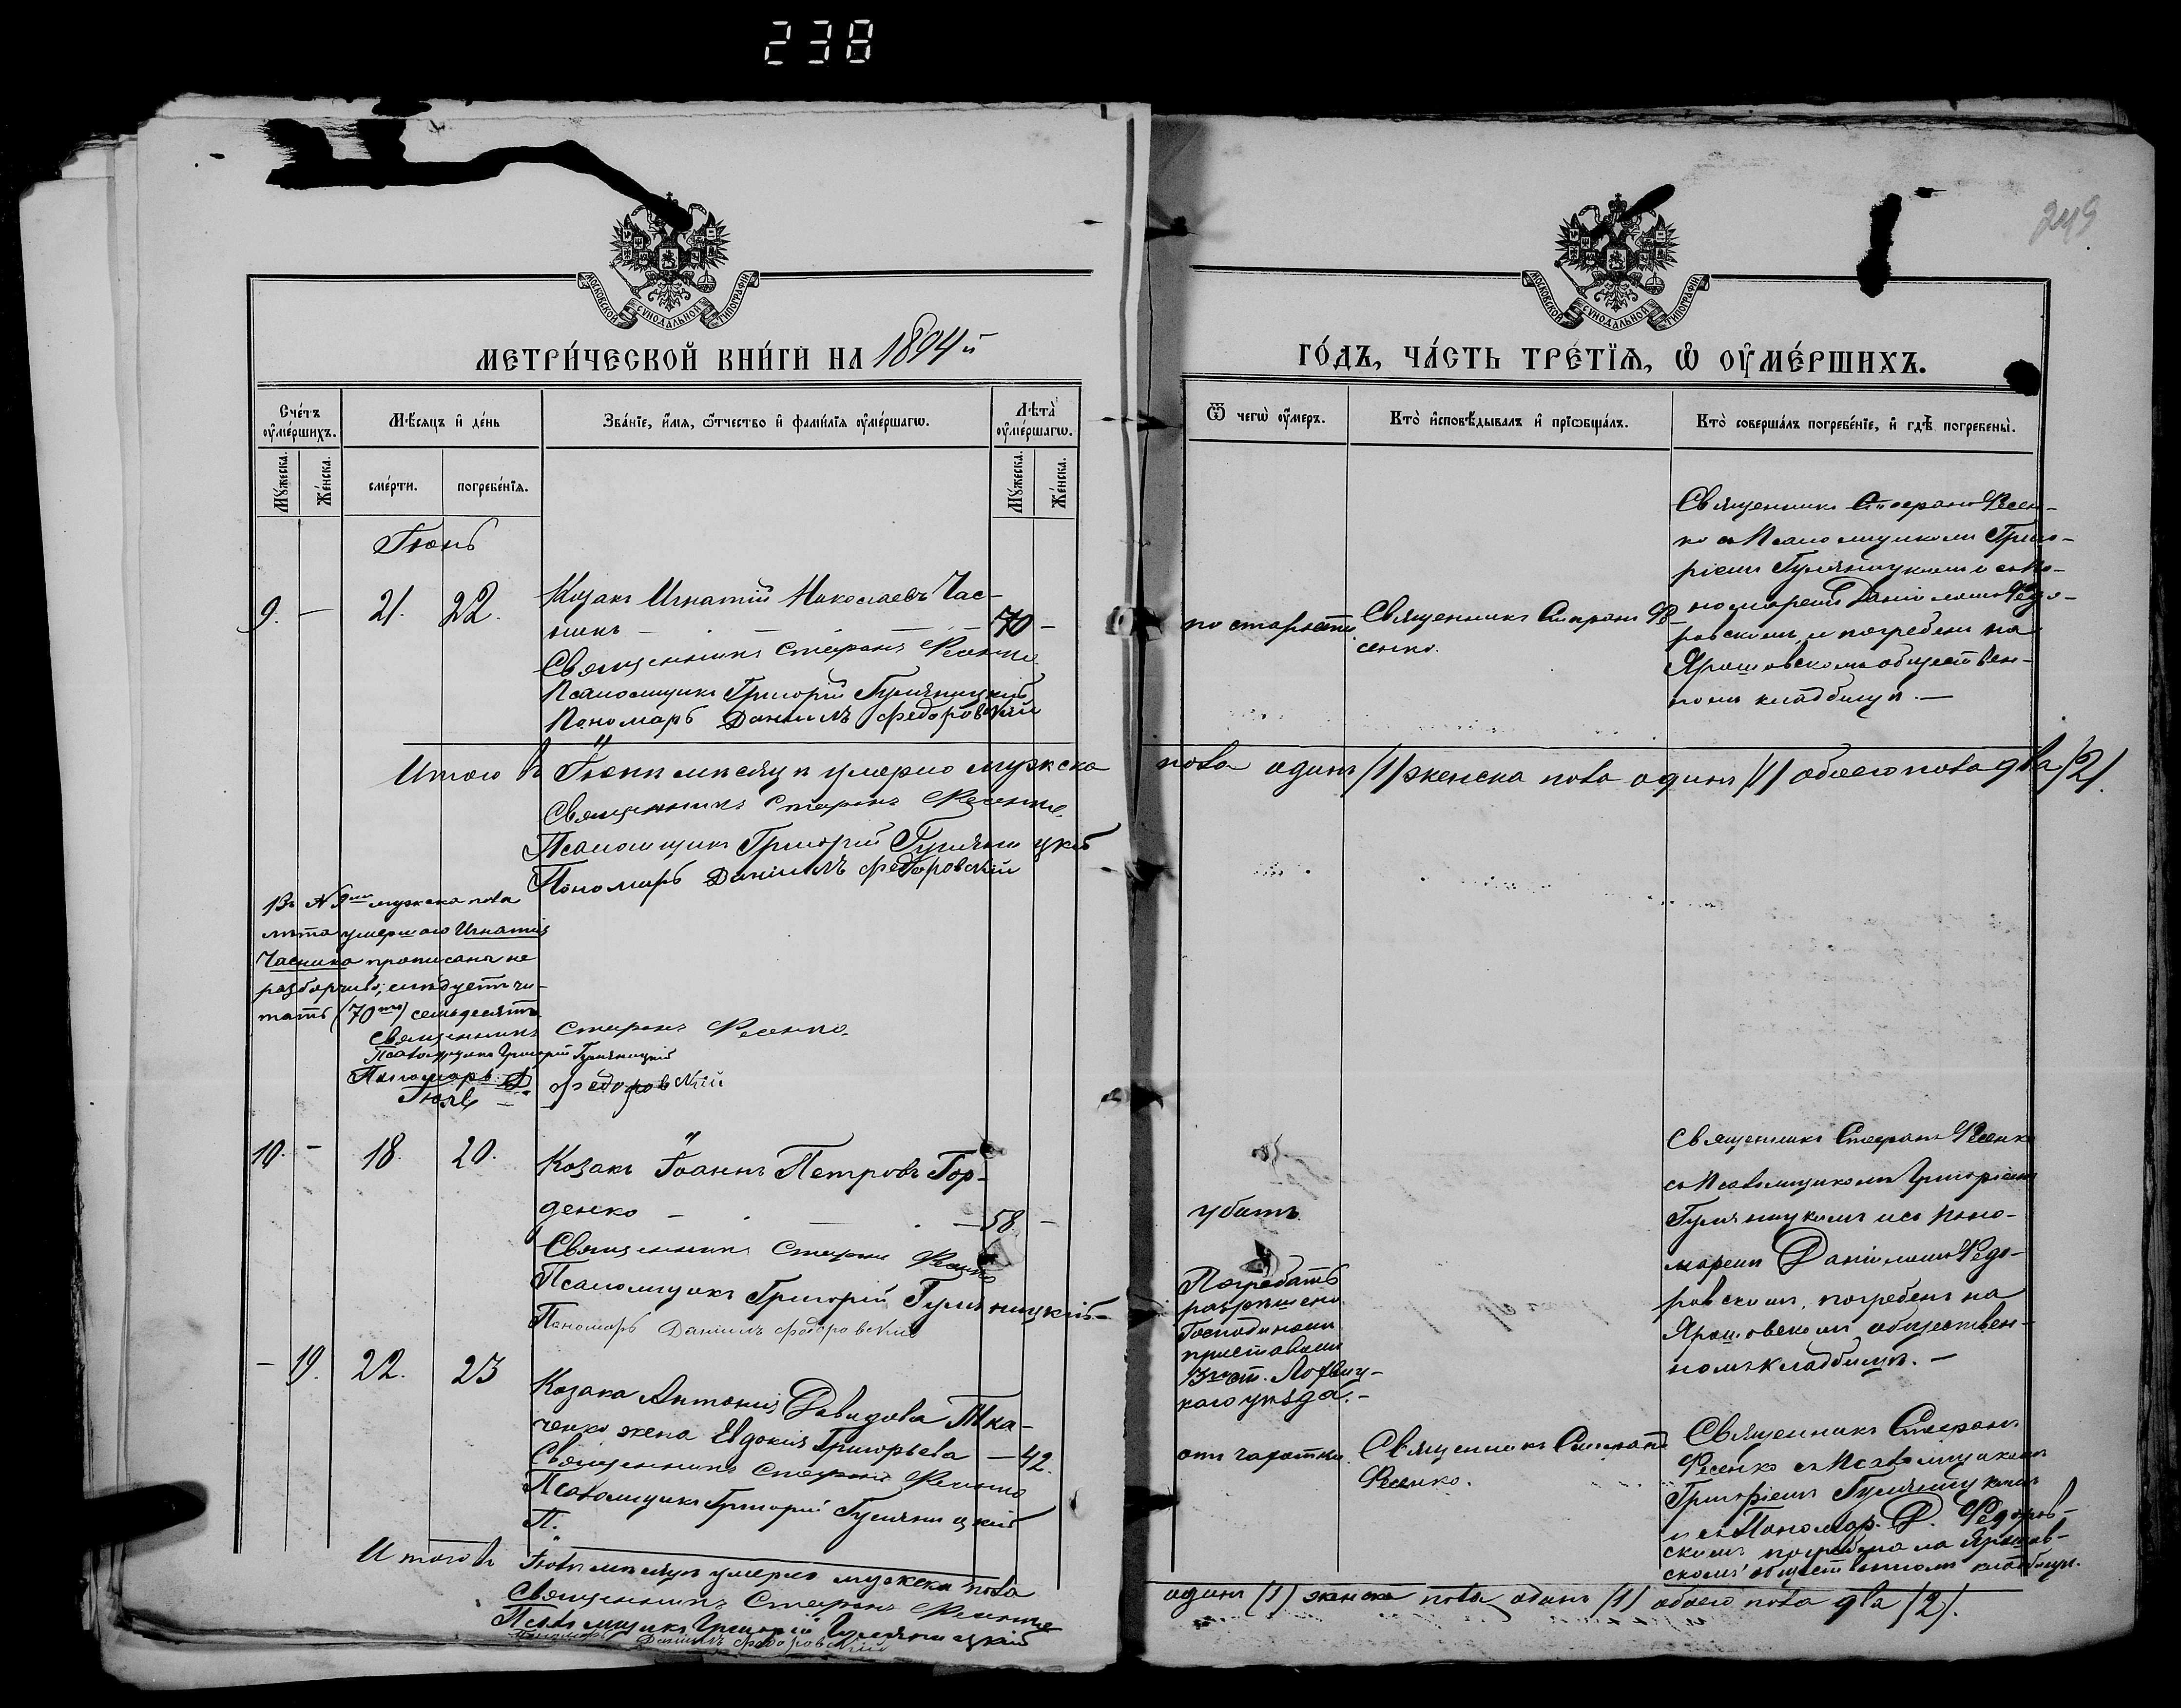 238
249
МОСКОВСКОЙ СУНОДАЛЬНОЙ ТИПОГРАФІИ
МОСКОВСКОЙ СУНОДАЛЬНОЙ ТИПОГРАФІИ
МЕТРИ́ЧЕСКОЙ КНИ́ГИ НА 1894 й
ГО́ДЪ, ЧА́СТЬ ТРЕ́ТІѦ, Ѽ ОУ҆МЕ́РШИХЪ.
Сче́тъ оу҆ме́ршихъ.
Мꙋжеска.
Же́нска.
Мѣ́сяцъ и҆ де́нь
сме́рти.
погребе́нїѧ.
Зва́нїе, и҆́мѧ, ѻ҆́тчество и҆ фами́лїѧ оу҆ме́ршагѡ.
Лѣ́та оу҆ме́ршагѡ.
Мꙋжеска.
Же́нска.
Ѿ чегѡ̀ оу҆́меръ.
Кто̀ и҆сповѣ́дывалъ и҆ прїѡбща́лъ.
Кто̀ соверша́лъ погребе́нїе, и҆ гдѣ̀ погребены̀.
Іюнь
9. — 21. 22.
Козакъ Игнатій Николаевъ Час-
никъ — 70 —
Священникъ Стефанъ Фесенко
Псаломщикъ Григорій Гуляницкій
Пономарь Даніилъ Федоровскій
по старости
Священникъ Стефанъ Фе-
сенко.
Священникъ Стефанъ Фесен-
ко съ Псаломщикомъ Григо-
ріемъ Гуляницкимъ и съ По-
номаремъ Даніиломъ Федо-
ровскимъ, и погребенъ на
Ярошовскомъ обществен-
номъ кладбищѣ. —
Итого въ Іюнѣ мѣсяцѣ умерло мужска
пола одинъ /1/ женска пола одинъ /1/ обоего пола два /2/.
Священникъ Стефанъ Фесенко
Псаломщикъ Григорій Гуляницкій
Пономарь Даніилъ Федоровскій
Въ № 9мъ мужска пола
лѣта умершаго Игнатія
Часника прописаны не
разборчиво; слѣдуетъ чи-
тать (70ть) семьдесятъ.
Священникъ Стефанъ Фесенко.
Псаломщикъ Григорій Гуляницкій
Пономарь Д. Федоровскій
Іюль
10. — 18. 20.
Козакъ Іоаннъ Петровъ Гор-
денко — 58 —
Священникъ Стефанъ Фесенко
Псаломщикъ Григорій Гуляницкій
Пономарь Даніилъ Федоровскій
убитъ.
Погребать
разрѣшено
Господиномъ
приставомъ
3го ст. Лохвиц-
каго уѣзда. —
Священникъ Стефанъ Фесенко
съ Псаломщикомъ Григоріемъ
Гуляницкимъ и съ Поно-
маремъ Даніиломъ Федо-
ровскимъ, погребенъ на
Ярошовскомъ обществен-
номъ кладбищѣ. —
— 19. 22. 23
Козака Антонія Давидова Тка-
ченко жена Евдокія Григорьева — 42.
Священникъ Стефанъ Фесенко
Псаломщикъ Григорій Гуляницкій
П.
отъ чахотки.
Священникъ Стефанъ
Фесенко.
Священникъ Стефанъ
Фесенко съ Псаломщикомъ
Григоріемъ Гуляницкимъ
и съ Пономар. Д. Федоров-
скимъ погребена на Ярошов-
скомъ общественномъ кладбищѣ.
Итого въ Іюлѣ мѣсяцѣ умерло мужска пола
одинъ /1/ женска пола одинъ /1/ обоего пола два /2/.
Священникъ Стефанъ Фесенко
Псаломщикъ Григорій Гуляницкій
Пономарь Даніилъ Федоровскій